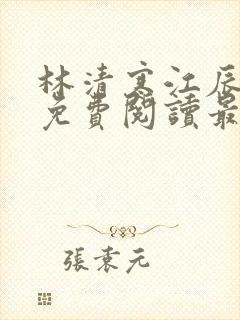 林清寒江辰
免費閱讀最
張袁元